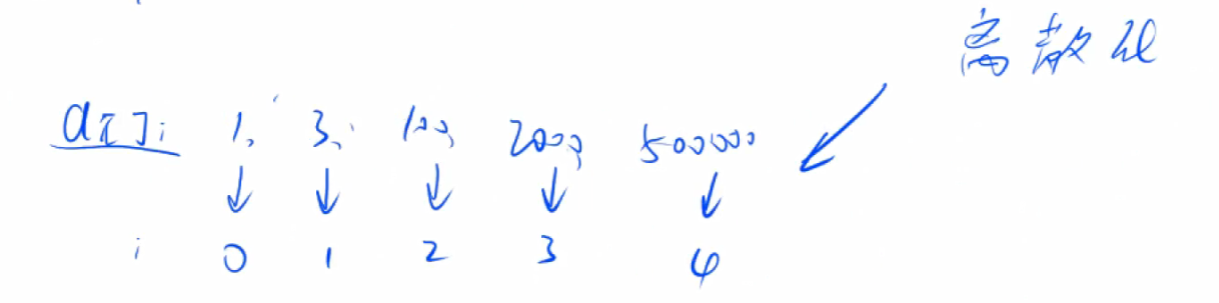 离散化
a[]: 1, 3, 100, 2000, 500000
i 0 1 2 3 4